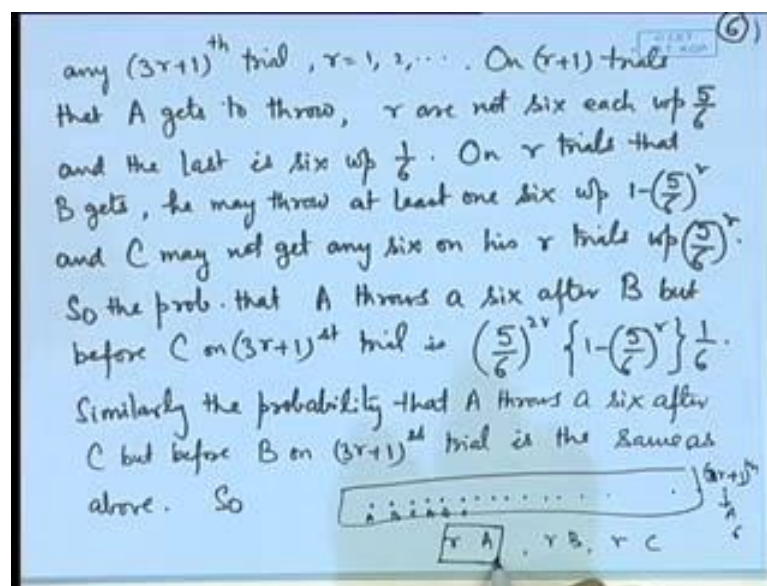 ⑥)
any (3r+1)^th trial, r=1, 2, .... On (r+1) trials
that A gets to throw, r are not six each wp 5/6
and the last is six wp 1/6. On r trials that
B gets, he may throw at least one six wp 1-(5/6)^r
and C may not get any six on his r trials wp (5/6)^r.
So the prob. that A throws a six after B but
before C on (3r+1)^st trial is (5/6)^2r {1-(5/6)^r} 1/6.
Similarly the probability that A throws a six after
C but before B on (3r+1)^st trial is the same as
above. So
(3r+1)^th
A
6
r A, r B, r C